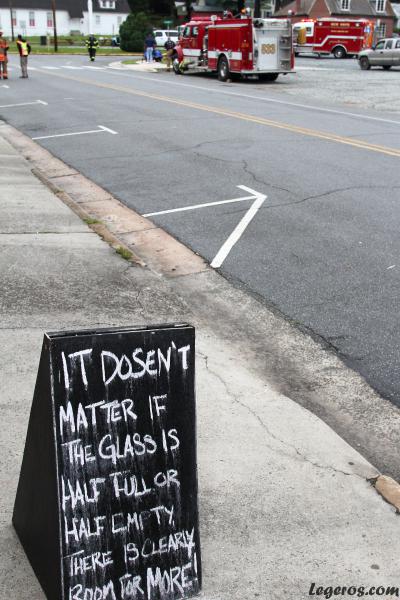 IT DOSEN'T
MATTER IF
THE GLASS IS
HALF FULL OR
HALF EMPTY.
THERE IS CLEARLY
ROOM FOR MORE!
Legeros.com